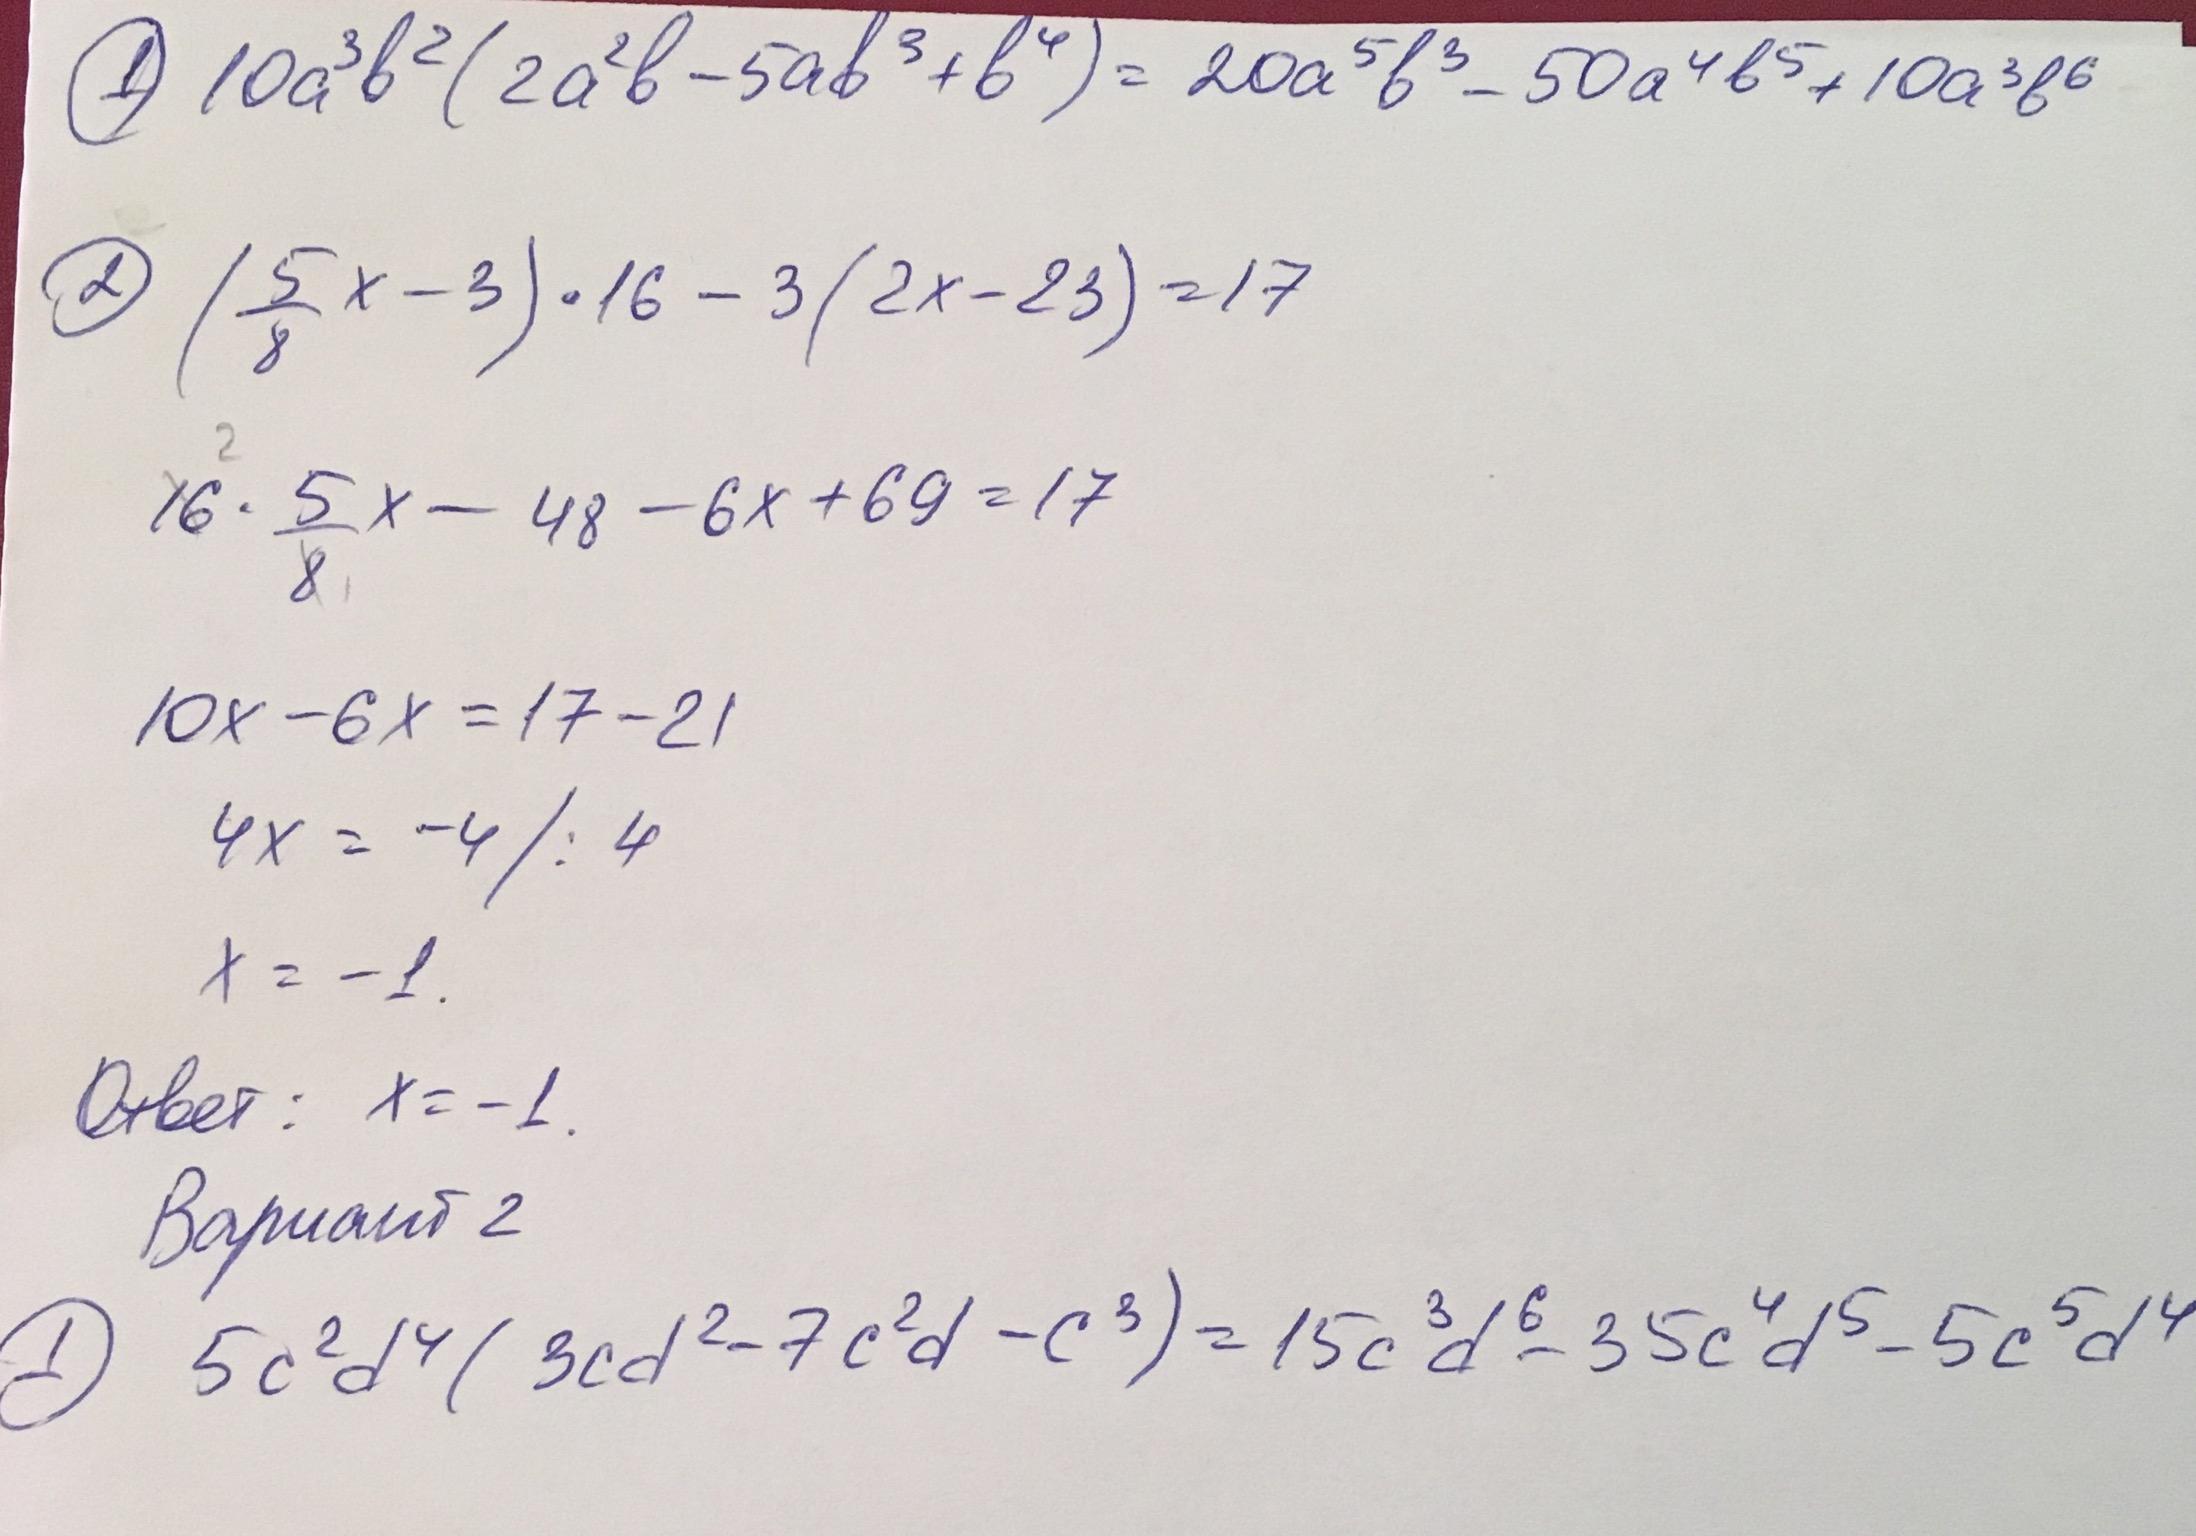 ① 10a³b²(2a²b-5ab³+b⁴)=20a⁵b³-50a⁴b⁵+10a³b⁶
② (5/8 x-3)·16-3(2x-23)=17
2
16·5/8 x-48-6x+69=17
1
10x-6x=17-21
4x=-4/:4
x=-1.
Ответ: x=-1.
Вариант 2
① 5c²d⁴(3cd²-7c²d-c³)=15c³d⁶-35c⁴d⁵-5c⁵d⁴